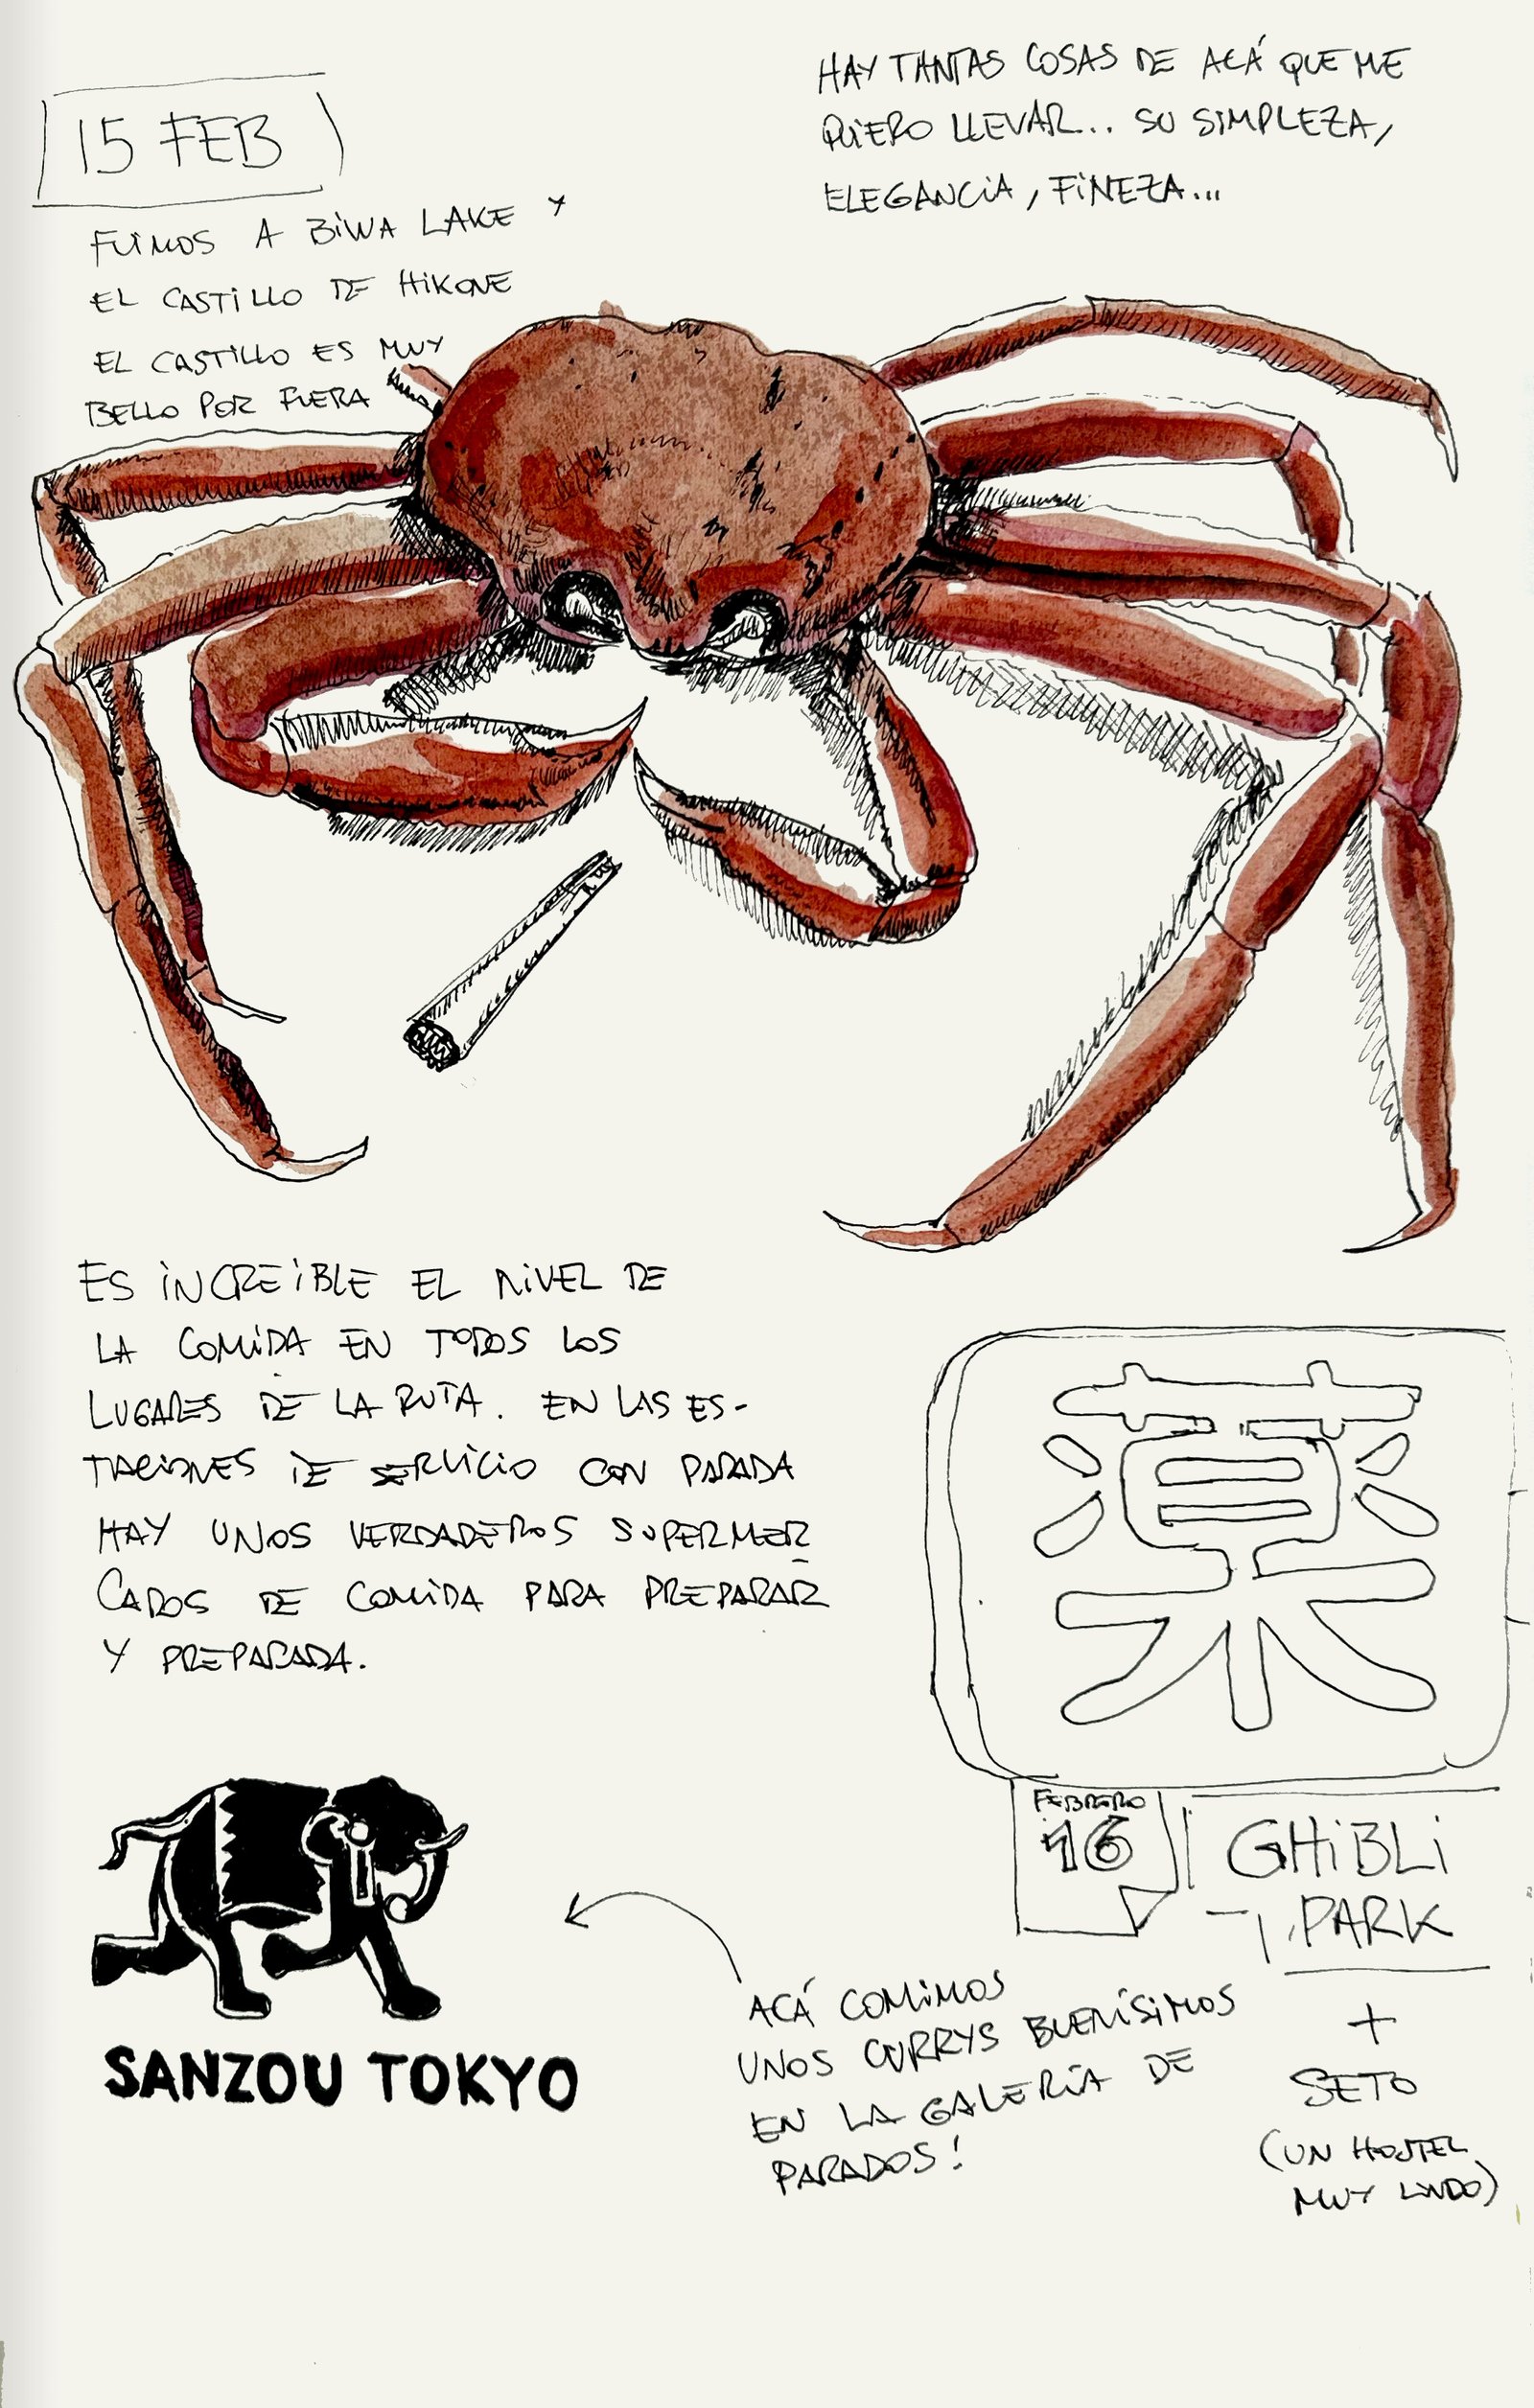 15 FEB
FUIMOS A BIWA LAKE Y
EL CASTILLO DE HIKONE
EL CASTILLO ES MUY
BELLO POR FUERA
HAY TANTAS COSAS DE ACÁ QUE ME
QUIERO LLEVAR... SU SIMPLEZA,
ELEGANCIA, FINEZA...
ES INCREIBLE EL NIVEL DE
LA COMIDA EN TODOS LOS
LUGARES DE LA RUTA. EN LAS ES-
TACIONES DE SERVICIO CON PARADA
HAY UNOS VERDADEROS SUPERMER
CADOS DE COMIDA PARA PREPARAR
Y PREPARADA.
薬
FEBRERO
16
GHIBLI
PARK
+
SETO
(UN HOSTEL
MUY LINDO)
SANZOU TOKYO
ACÁ COMIMOS
UNOS CURRYS BUENÍSIMOS
EN LA GALERÍA DE
PARADOS!